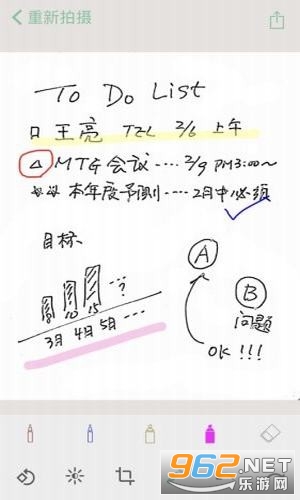 重新拍摄
To Do List
口 王亮 TEL 2/6 上午
△ MTG 会议 ···· 2/9 PM 3:00~
本年度予測 ···· 2月中必须
目标
A
B
···?
8 10 15
3月 4月 5月 ···
问题
OK !!!
962.NET
乐游网